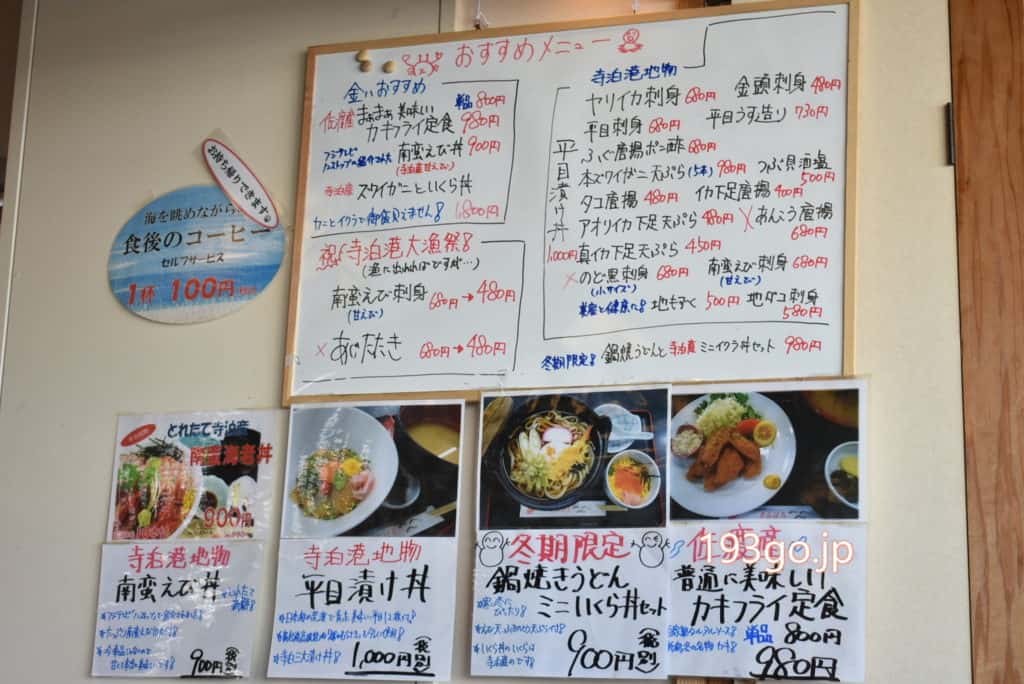 おすすめメニュー
金いおすすめ
佐渡産 まぁまぁ美味しい 単品 800円
カキフライ定食 980円
フジテレビ
南蛮えび丼 900円
(寺泊産甘えび)
寺泊産 ズワイガニといくら丼
カニとイクラで御飯見えません! 1,800円
祝 寺泊港大漁祭!
(漁に出れればですが…)
南蛮えび刺身 680円→480円
(甘えび)
×あじたたき 680円→480円
寺泊港地物
ヤリイカ刺身 680円 金頭刺身 480円
平目刺身 680円 平目うす造り 730円
平目漬け丼 1,000円
ふぐ唐揚ポン酢 680円
本ズワイガニ天ぷら(5本) 980円 つぶ貝酒塩 500円
タコ唐揚 480円 イカ下足唐揚 400円
アオリイカ下足天ぷら 480円 ×あんこう唐揚 680円
真イカ下足天ぷら 450円
×のど黒刺身 680円 南蛮えび刺身 680円
(小サイズ) (甘えび)
美容と健康に! 地もずく 500円 地ダコ刺身 580円
冬期限定! 鍋焼うどんと寺泊産ミニイクラ丼セット 980円
お持ち帰りできます
海を眺めながら
食後のコーヒー
セルフサービス
1杯 100円
とれたて寺泊産
南蛮海老丼
900円
寺泊港地物
南蛮えび丼
900円(税別)
寺泊港地物
平目漬け丼
※寺泊三大漬け丼!
1,000円(税別)
冬期限定
鍋焼きうどん
ミニいくら丼セット
※いくら丼のいくらは
寺泊産です!
900円(税別)
佐渡産
普通に美味しい
カキフライ定食
単品 800円
980円
193go.jp